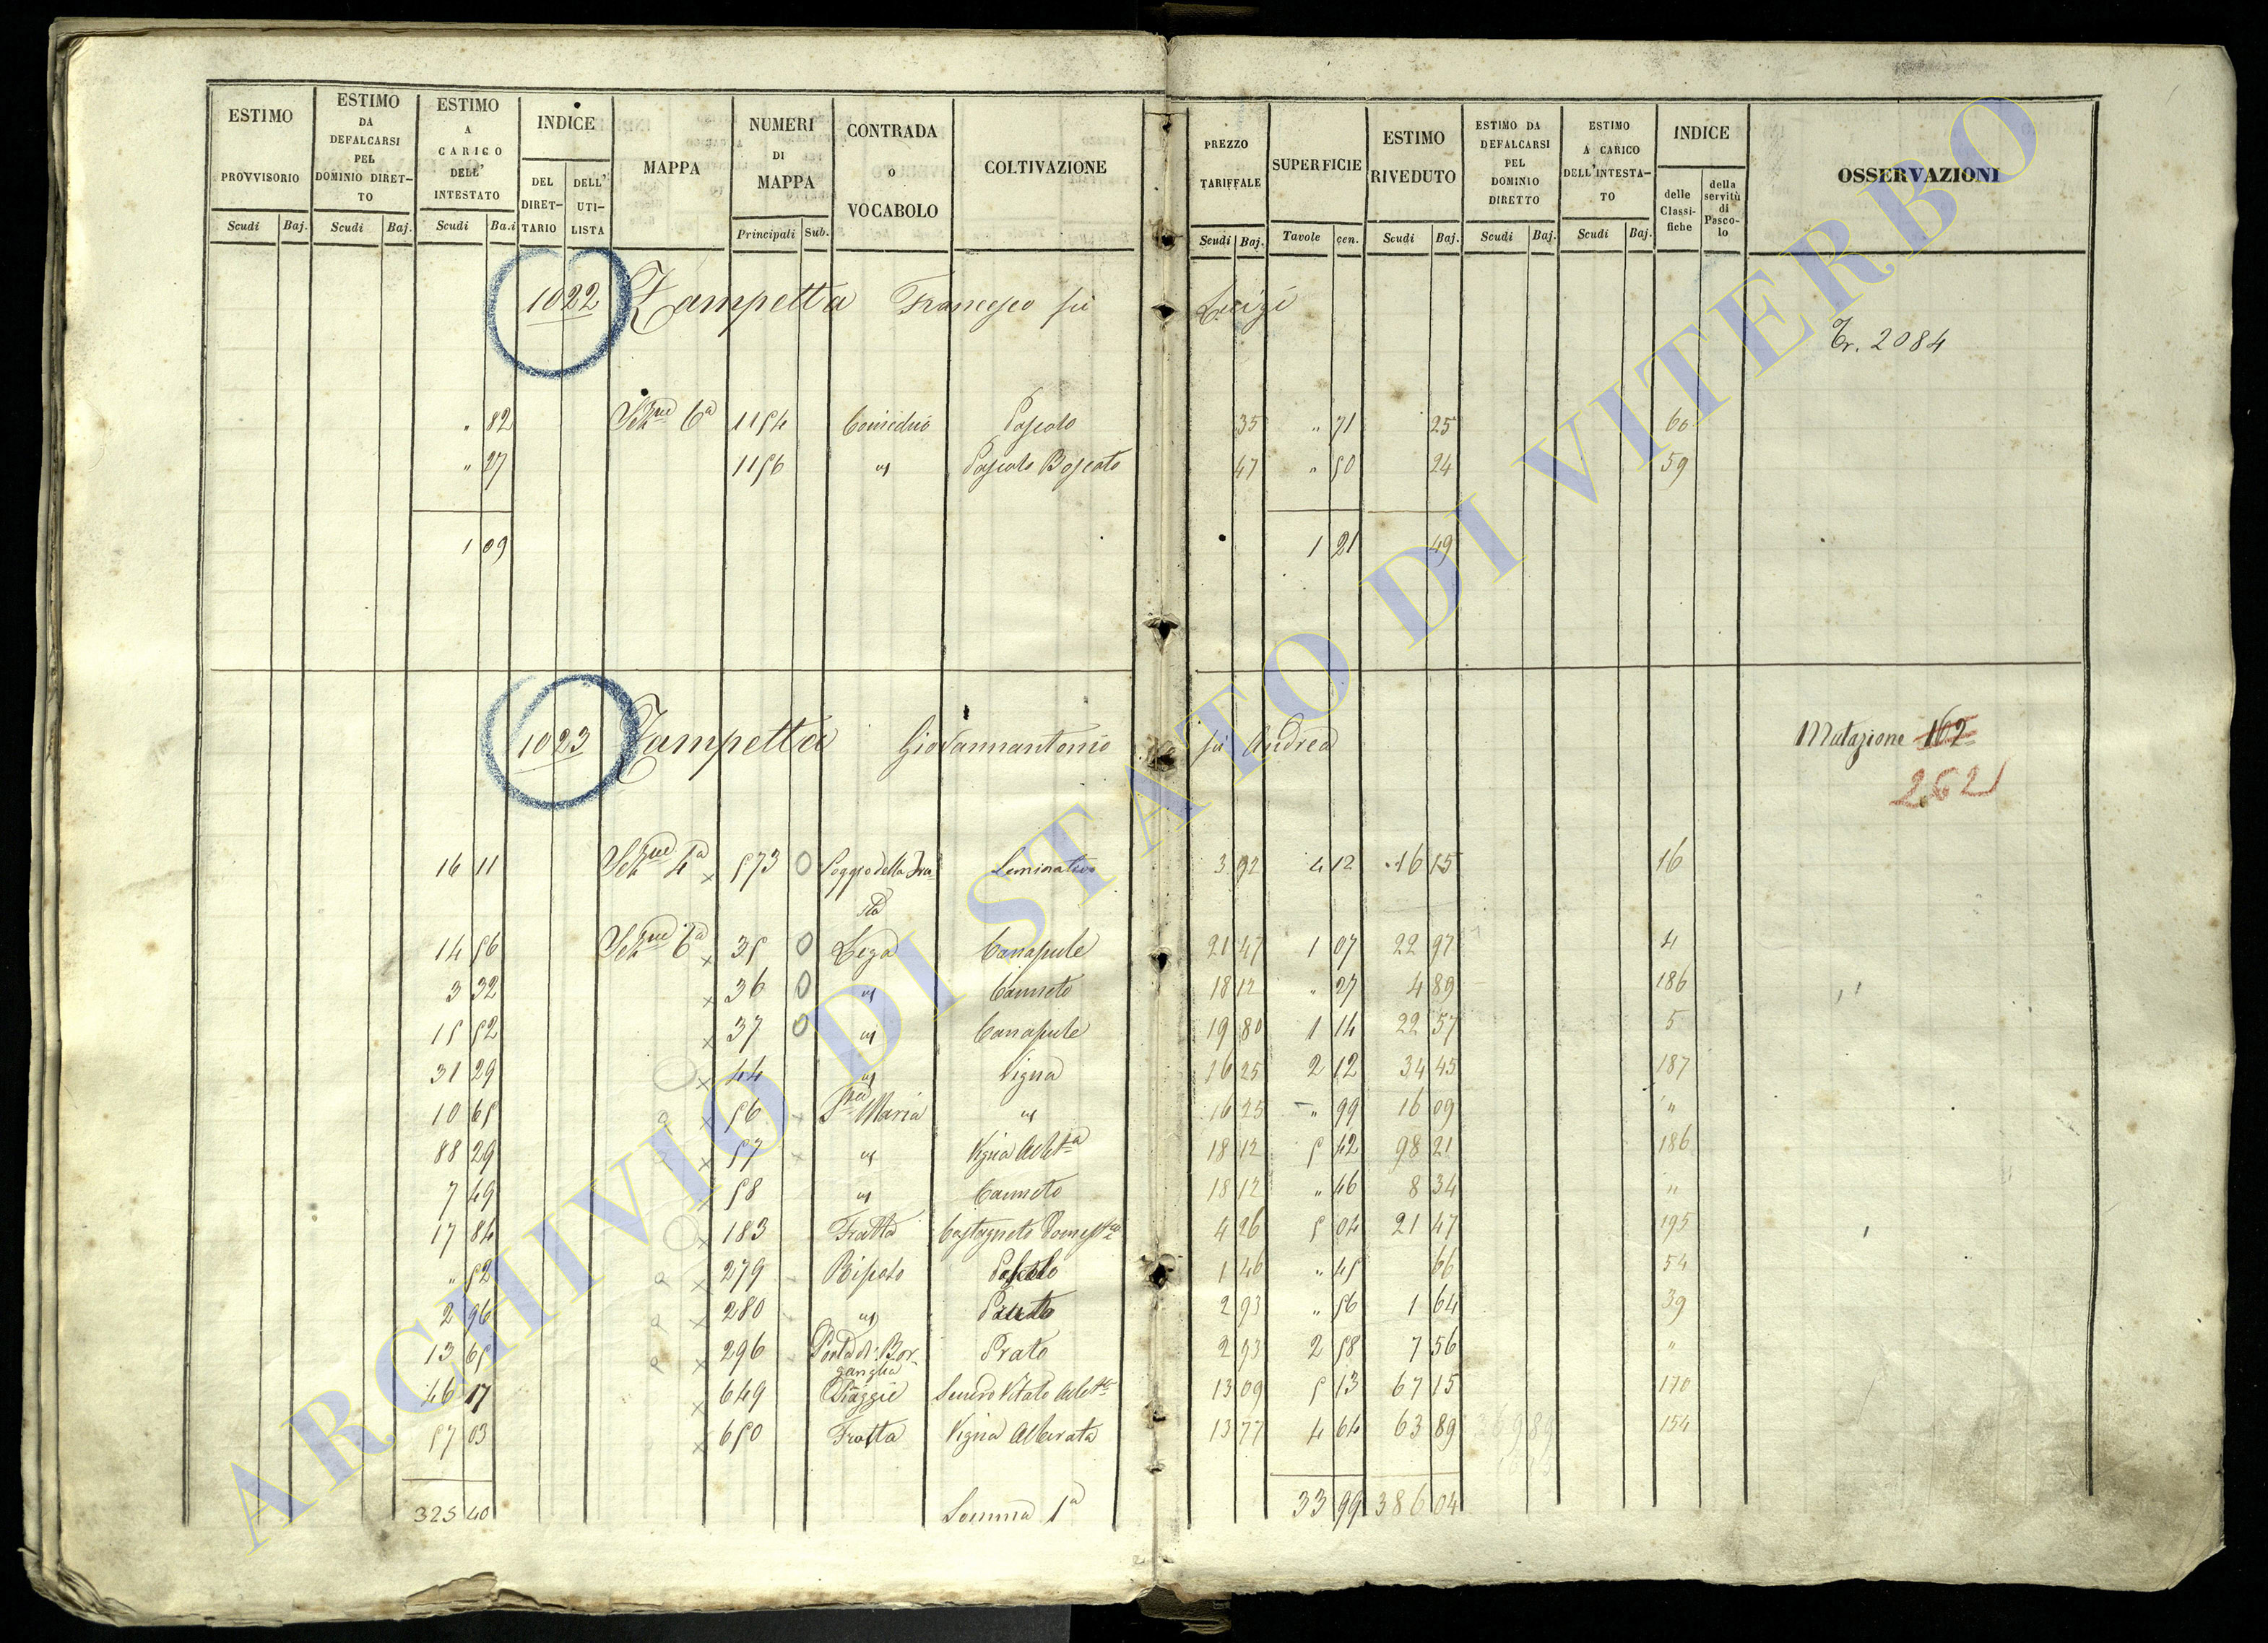 ESTIMO PROVVISORIO Scudi Baj.
ESTIMO DA DEFALCARSI PEL DOMINIO DIRET-TO Scudi Baj.
ESTIMO A CARICO DELL' INTESTATO Scudi Ba.i
INDICE DEL DIRET-TARIO DELL' UTI-LISTA
MAPPA
NUMERI DI MAPPA Principali Sub.
CONTRADA O VOCABOLO
COLTIVAZIONE
PREZZO TARIFFALE Scudi Baj.
SUPERFICIE Tavole cen.
ESTIMO RIVEDUTO Scudi Baj.
ESTIMO DA DEFALCARSI PEL DOMINIO DIRETTO Scudi Baj.
ESTIMO A CARICO DELL'INTESTA-TO Scudi Baj.
INDICE delle Classi-fiche della servitù di Pasco-lo
OSSERVAZIONI
1022 Zampetta Francesco fu Luigi
Tr. 2084
" 82 Sezne 6a 1154 Pascolo 35 " 71 25 60
" 27 1156 " Pascolo Boscato 47 " 50 24 59
1 09 1 21 49
1023 Zampetta Giovannantonio fu Andrea Mutazione 162
262
16 11 Sezne 4a x 573 0 Poggio della Seminativo 3 92 4 12 16 15 16
14 56 Sezne 6a x 35 0 Lega Canapule 21 47 1 07 22 97 4
3 32 x 36 0 " Canneto 18 12 " 27 4 89 186
15 52 x 37 0 " Canapule 19 80 1 14 22 57 5
31 29 x 44 " Vigna 16 25 2 12 34 45 187
10 65 x 56 Maria " 16 25 " 99 16 09 "
88 29 x 57 " Vigna Albta 18 12 5 42 98 21 186
7 49 x 58 " Canneto 18 12 " 46 8 34 "
17 84 x 183 Fratta Castagneto Domest 4 26 5 04 21 47 195
" 52 x 279 Pascolo 1 46 " 45 66 54
2 96 x 280 " 2 93 " 56 1 64 39
13 65 x 296 Prato 2 93 2 58 7 56 "
46 17 x 649 Piaggie 13 09 5 13 67 15 170
57 03 x 650 Fratta Vigna Alberata 13 77 4 64 63 89 154
325 40 Somma 1a 33 99 386 04
ARCHIVIO DI STATO DI VITERBO